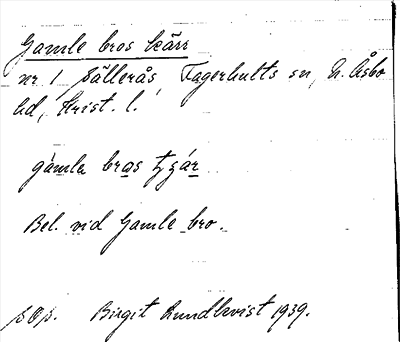 Gamle bros kärr
nr 1, Sällerås, Fagerhults sn, N. Åsbo
hd, Krist. l.
gamla bros tȿár
Bel. vid Gamle bro.
Birgit Lundkvist 1939.